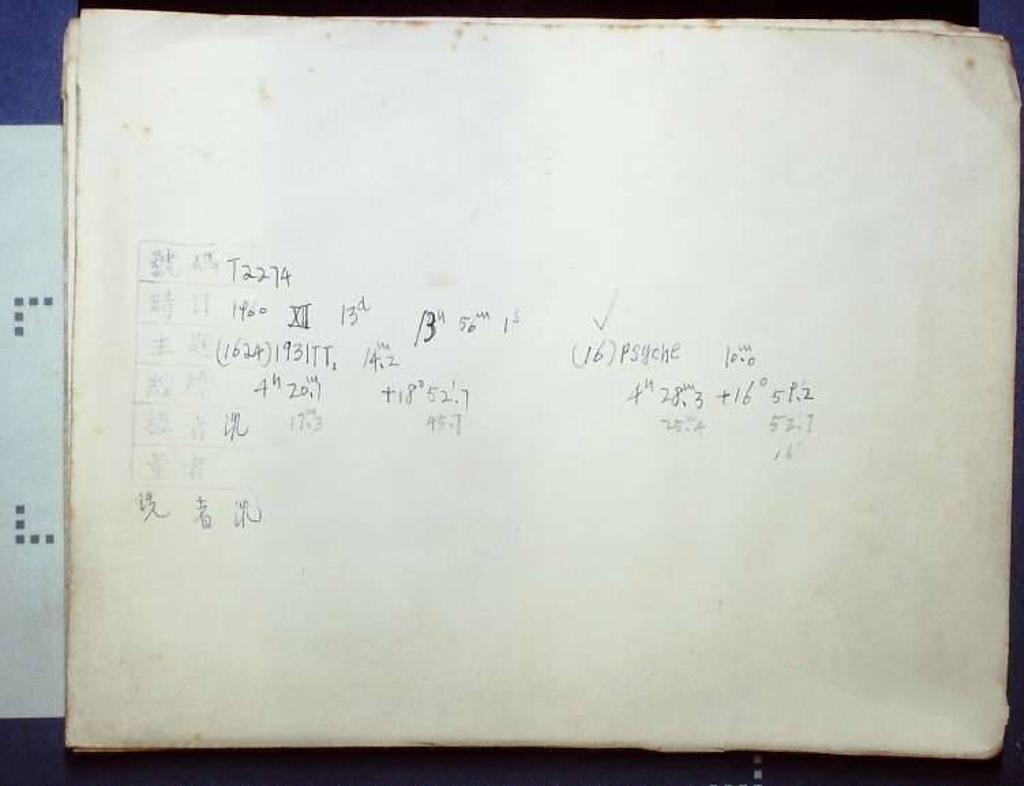 號碼 T2274
時日 1960 XII 13ᵈ 13ʰ 56ᵐ 1ˢ
主題 (1624) 1931TT₁ 14ᵐ.2 (16) PSYche 10ᵐ.0
4ʰ 20ᵐ.1 +18° 52'.7 4ʰ 28ᵐ.3 +16° 59'.2
者 沈 17ᵐ.3 45'.7 25ᵐ.4 52'.7
16°
洗者 沈